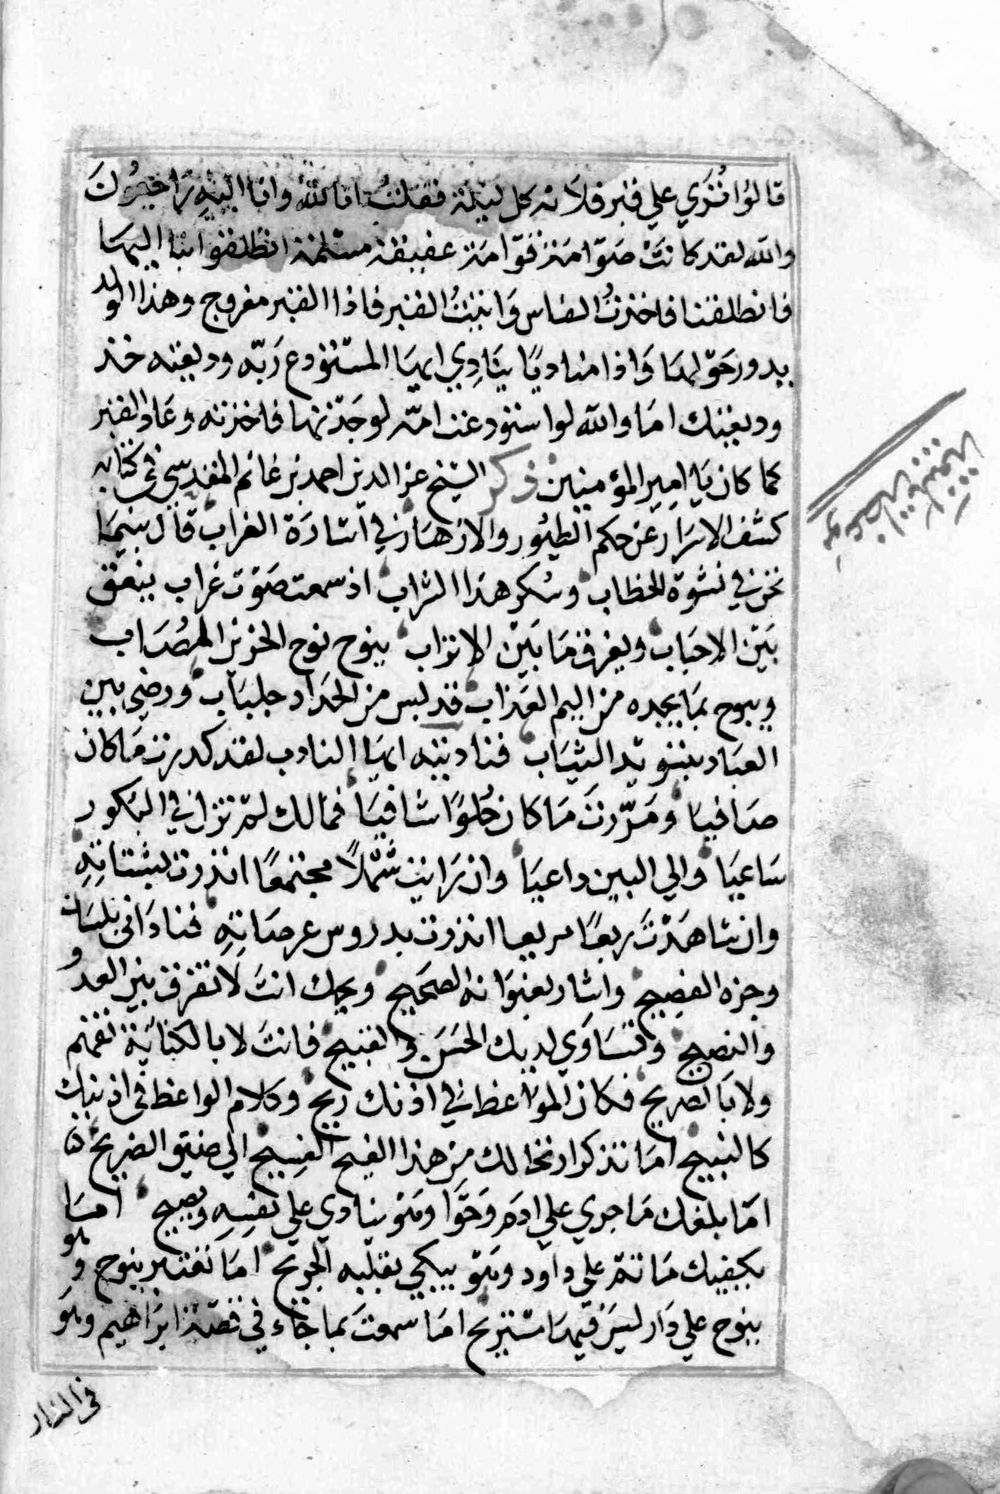 قالوا نُرَي علي قبر فلانه كل ليلة فقلتُ انا لله وانا اليْهِ رَاجعُونَ
والله لقد كانتْ صَوّامَة قوّامَة عفيفة مسْلمة انطلقوا بنا اليهَا
فانطلقنا فاخذتُ الفاس وَاتيْتُ القبر فاذا القبر مفروج وهذا الولد
يدور حَوْلهَا وَاذا مناديًا ينَادِي ايهَا المسْتوْدع رَبّه وديعته خذ
وديعتك امَا والله لو استودعت امّه لوجَدْتهَا فاخذته وعَاد القبر
كما كان يَا امير المؤمنين ذكر الشيخ عز الدين احمد بن غانم المقدسي في كتابه
كشف الاسْرَار عن حكم الطيُور والازهَار في اشارَة الغراب قال بينمَا
نحن في نشوة الخطاب وسُكر هذا الشراب اذ سمعت صَوْت غراب ينعق
بَيْن الاحبَاب ويفرق مَا بَيْن الاتراب ينوح نوح الحزين المصَاب
ويبوح بمَا يجده من اليم العَذاب قد لبس من الحَداد جلبَاب ورضي بين
العبَاد بتسْويد الثيَاب فناديته ايهَا النادب لقد كدرت مَا كان
صَافيا ومَرّرتَ مَا كان حُلوًا شافيَا فمالك لمْ تزل في البكور
سَاعيَا والي البين داعيَا وان رَايت شمْلاً مجتمعًا انذرت بشتاتِهِ
وان شاهدْتَ ربعًا مريعا انذرت بدروس عرصَاتِهِ فنادَاني بلسَان
وجزه الفصيح واشار بعنوَانه الصحيح ويحك انتَ لا تفرق بين العدُو
والنصيح وتتسَاوَي لديك الحسَن والقبيح فانتَ لا بالكنايَة تفهم
ولا بالصريح فكان الموَاعظ في اذنك ريح وكلام الواعظ في اذنيك
كالنبيح امَا تذكر ارتحالك من هذا الفيح الفسيح الي ضيق الضريح
امَا بلغك مَا جري علي ادمَ وَحَوّا وهوْ ينادي علي نفسِهِ ويصيح امَا
يكفيك مَا تمْ علي داود وهوْ يبكي بقلبه الجريح امَا تعتبر بنوح وهو
ينوح علي دَار ليسَ فيهَا مسْتريح امَا سمعتَ بمَا جَاء في قصَّة ابرَاهيم وهوَ
في النار